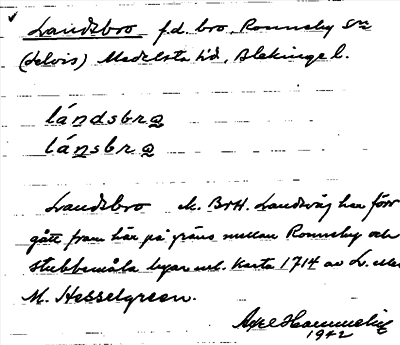 Landsbro f.d. bro, Ronneby sn
(delvis) Medelsta hd, Blekinge l.
lándsbrꭤ
lánsbrꭤ
Landsbro Landsväg har förr
gått fram här på gräns mellan Ronneby och
Stubbemåla byar enl. karta 1714 av L.
M. Hesselgreen.
Axel
1942